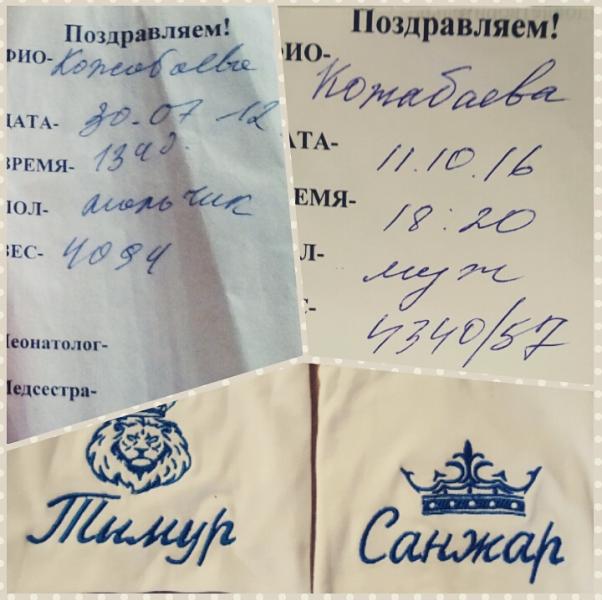 Поздравляем!
ФИО- Кожабаева
ДАТА- 30.07 12
ВРЕМЯ- 13 40.
ПОЛ- мальчик
ВЕС- 4094
Неонатолог-
Медсестра-
Поздравляем!
ИО-
Кожабаева
АТА-
11.10.16
ЕМЯ-
18:20
Л-
муж
4340/57
Тимур
Санжар